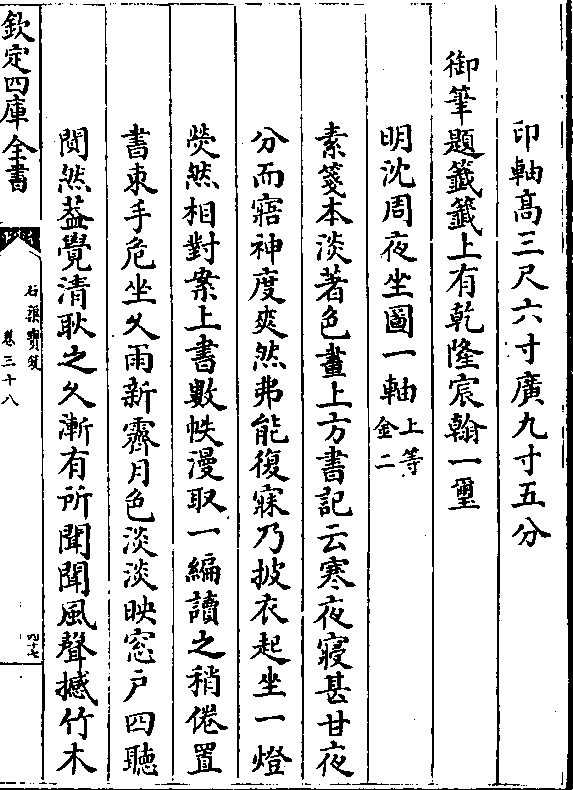 印軸高三尺六寸廣九寸五分
御筆題籤籤上有乾隆宸翰一璽
明沈周夜坐圖一軸上等金二
素箋本淡著色畫上方書記云寒夜寢甚甘夜
分而寤神度爽然弗能復寐乃披衣起坐一燈
熒然相對案上書數帙漫取一編讀之稍倦置
書束手危坐久雨新霽月色淡淡映窓戶四聽
閴然葢覺清耿之久漸有所聞聞風聲撼竹木
欽定四庫全書
石渠寳笈
卷三十八
四十七